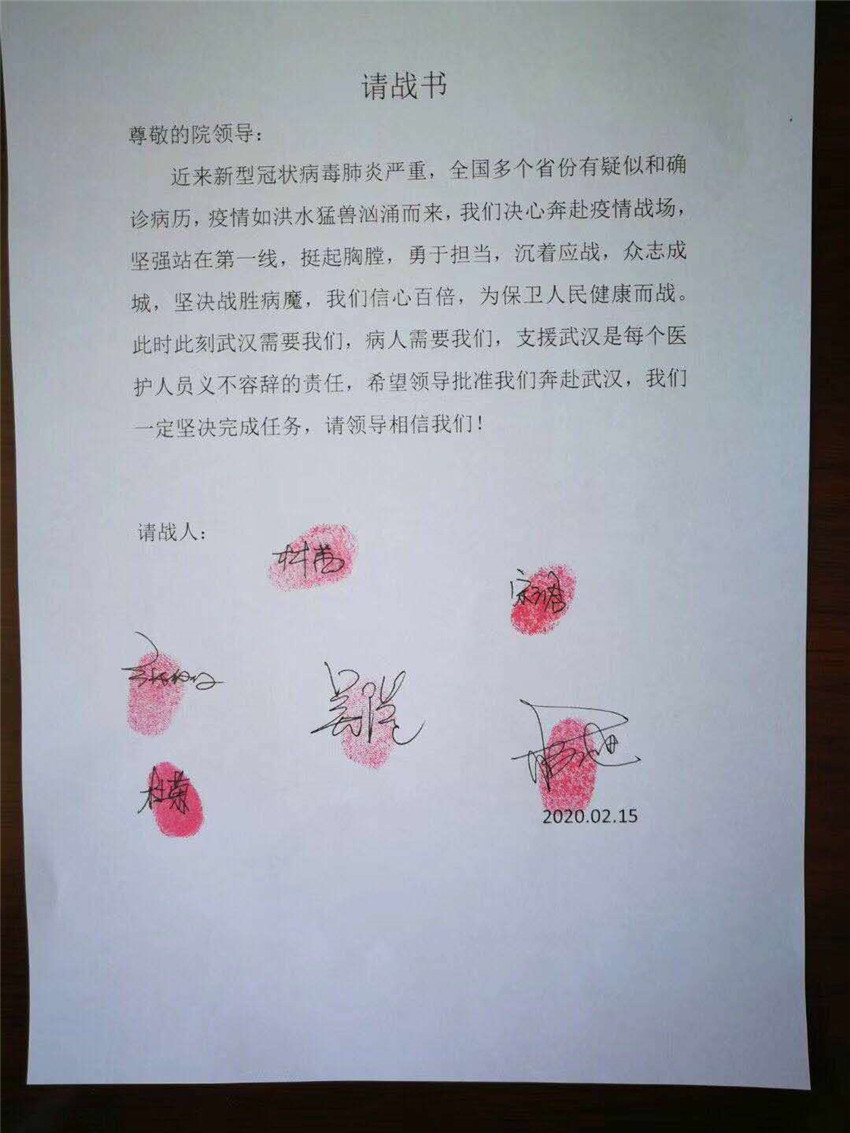 请战书
尊敬的院领导：
近来新型冠状病毒肺炎严重，全国多个省份有疑似和确
诊病历，疫情如洪水猛兽汹涌而来，我们决心奔赴疫情战场，
坚强站在第一线，挺起胸膛，勇于担当，沉着应战，众志成
城，坚决战胜病魔，我们信心百倍，为保卫人民健康而战。
此时此刻武汉需要我们，病人需要我们，支援武汉是每个医
护人员义不容辞的责任，希望领导批准我们奔赴武汉，我们
一定坚决完成任务，请领导相信我们！
请战人：
杜菊
2020.02.15